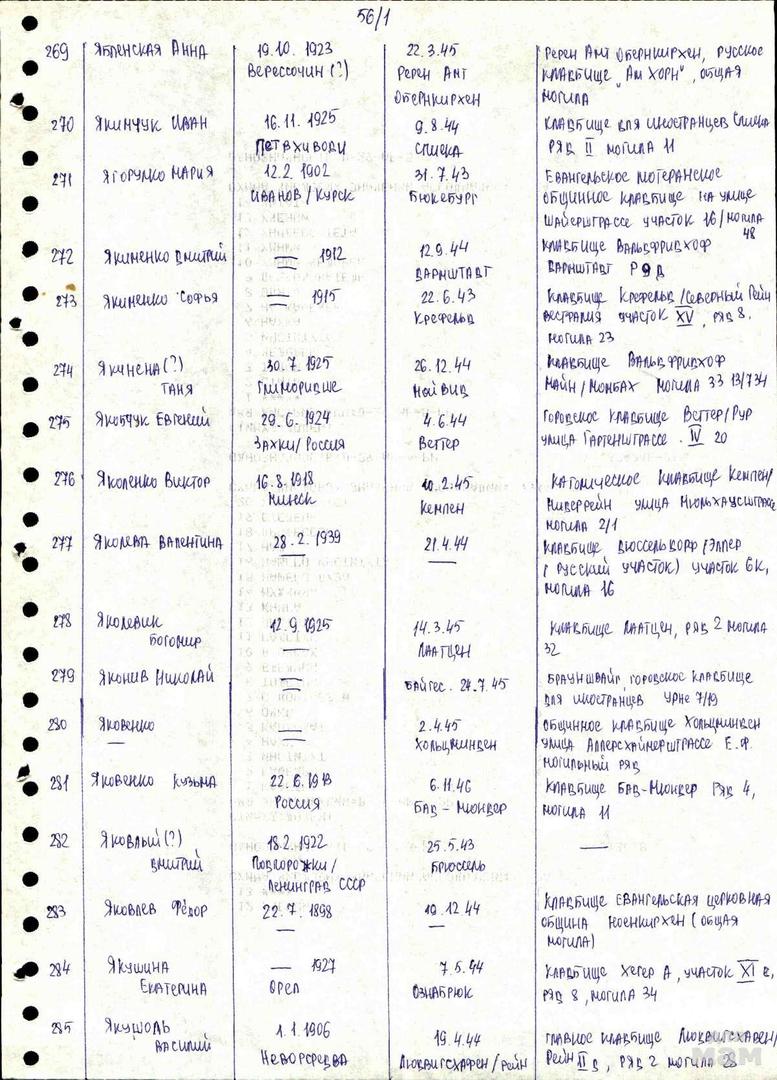 56/1
269 Ябленская Анна 19.10.1923 22.3.45 Ререн Амт Обернкирхен, русское
Верессочин (?) Ререн Амт кладбище "Ам Хорн", общая
Обернкирхен могила
270 Якинчук Иван 16.11.1925 9.8.44 Кладбище для иностранцев Слиска
Петвхиводи Слиска ряд II могила 11
271 Ягорумко Мария 12.2.1902 31.7.43 Евангельское лютеранское
Иванов/Курск Бюкебург общинное кладбище на улице
Шайерштрассе участок 16/могила
48
272 Якименко Дмитрий = 1912 12.9.44 Кладбище Вальдфридхоф
Дармштадт Дармштадт Р 9 Д
273 Якименко Софья = 1915 22.6.43 Кладбище Крефельд/Северный Рейн
Крефельд Вестфалия участок XV, ряд 8,
могила 23
274 Якинена (?) 30.7.1925 26.12.44 Кладбище Вальдфридхоф
Таня Глиморидше Нойвид Майн/Момбах могила 33 13/734
275 Якобчук Евгений 29.6.1924 4.6.44 Городское кладбище Веттер/Рур
Захки/Россия Веттер улица Гартенштрассе. IV 20
276 Яколенко Виктор 16.8.1918 10.2.45 Католическое кладбище Кемпен/
Минск Кемпен Нидеррейн улица Мюльхаусштрассе
могила 2/1
277 Яколева Валентина 28.2.1939 21.4.44 Кладбище Дюссельдорф/Эллер
— — (русский участок) участок 6к,
могила 16
278 Яколевик 12.9.1925 14.3.45 Кладбище Лаатцен, ряд 2 могила
Богомир — Лаатцен 32
279 Яконив Николай = Байгес. 24.7.45 Брауншвайг, городское кладбище
для иностранцев урне 7/19
280 Яковенко = 2.4.45 Общинное кладбище Хольцминден
— Хольцминден улица Аллерсхаймерштрассе Е.Ф.
могильный ряд
281 Яковенко Кузьма 22.6.1918 6.11.46 Кладбище Бад-Мюндер ряд 4,
Россия Бад-Мюндер могила 11
282 Яковлый (?) 18.2.1922 25.5.43 —
Дмитрий Подпорожки/ Брюссель
Ленинград СССР
283 Яковлев Фёдор 22.7.1898 19.12.44 Кладбище Евангельская церковная
— — община Ноенкирхен (общая
могила)
284 Якушина — 1927 7.5.44 Кладбище Хегер А, участок XI в,
Екатерина Орел Ознабрюк ряд 8, могила 34
285 Якушоль 1.1.1906 19.4.44 Главное кладбище Людвигсхафен/
Василий Неворсревва Людвигсхафен/Рейн Рейн II в, ряд 2 могила 28